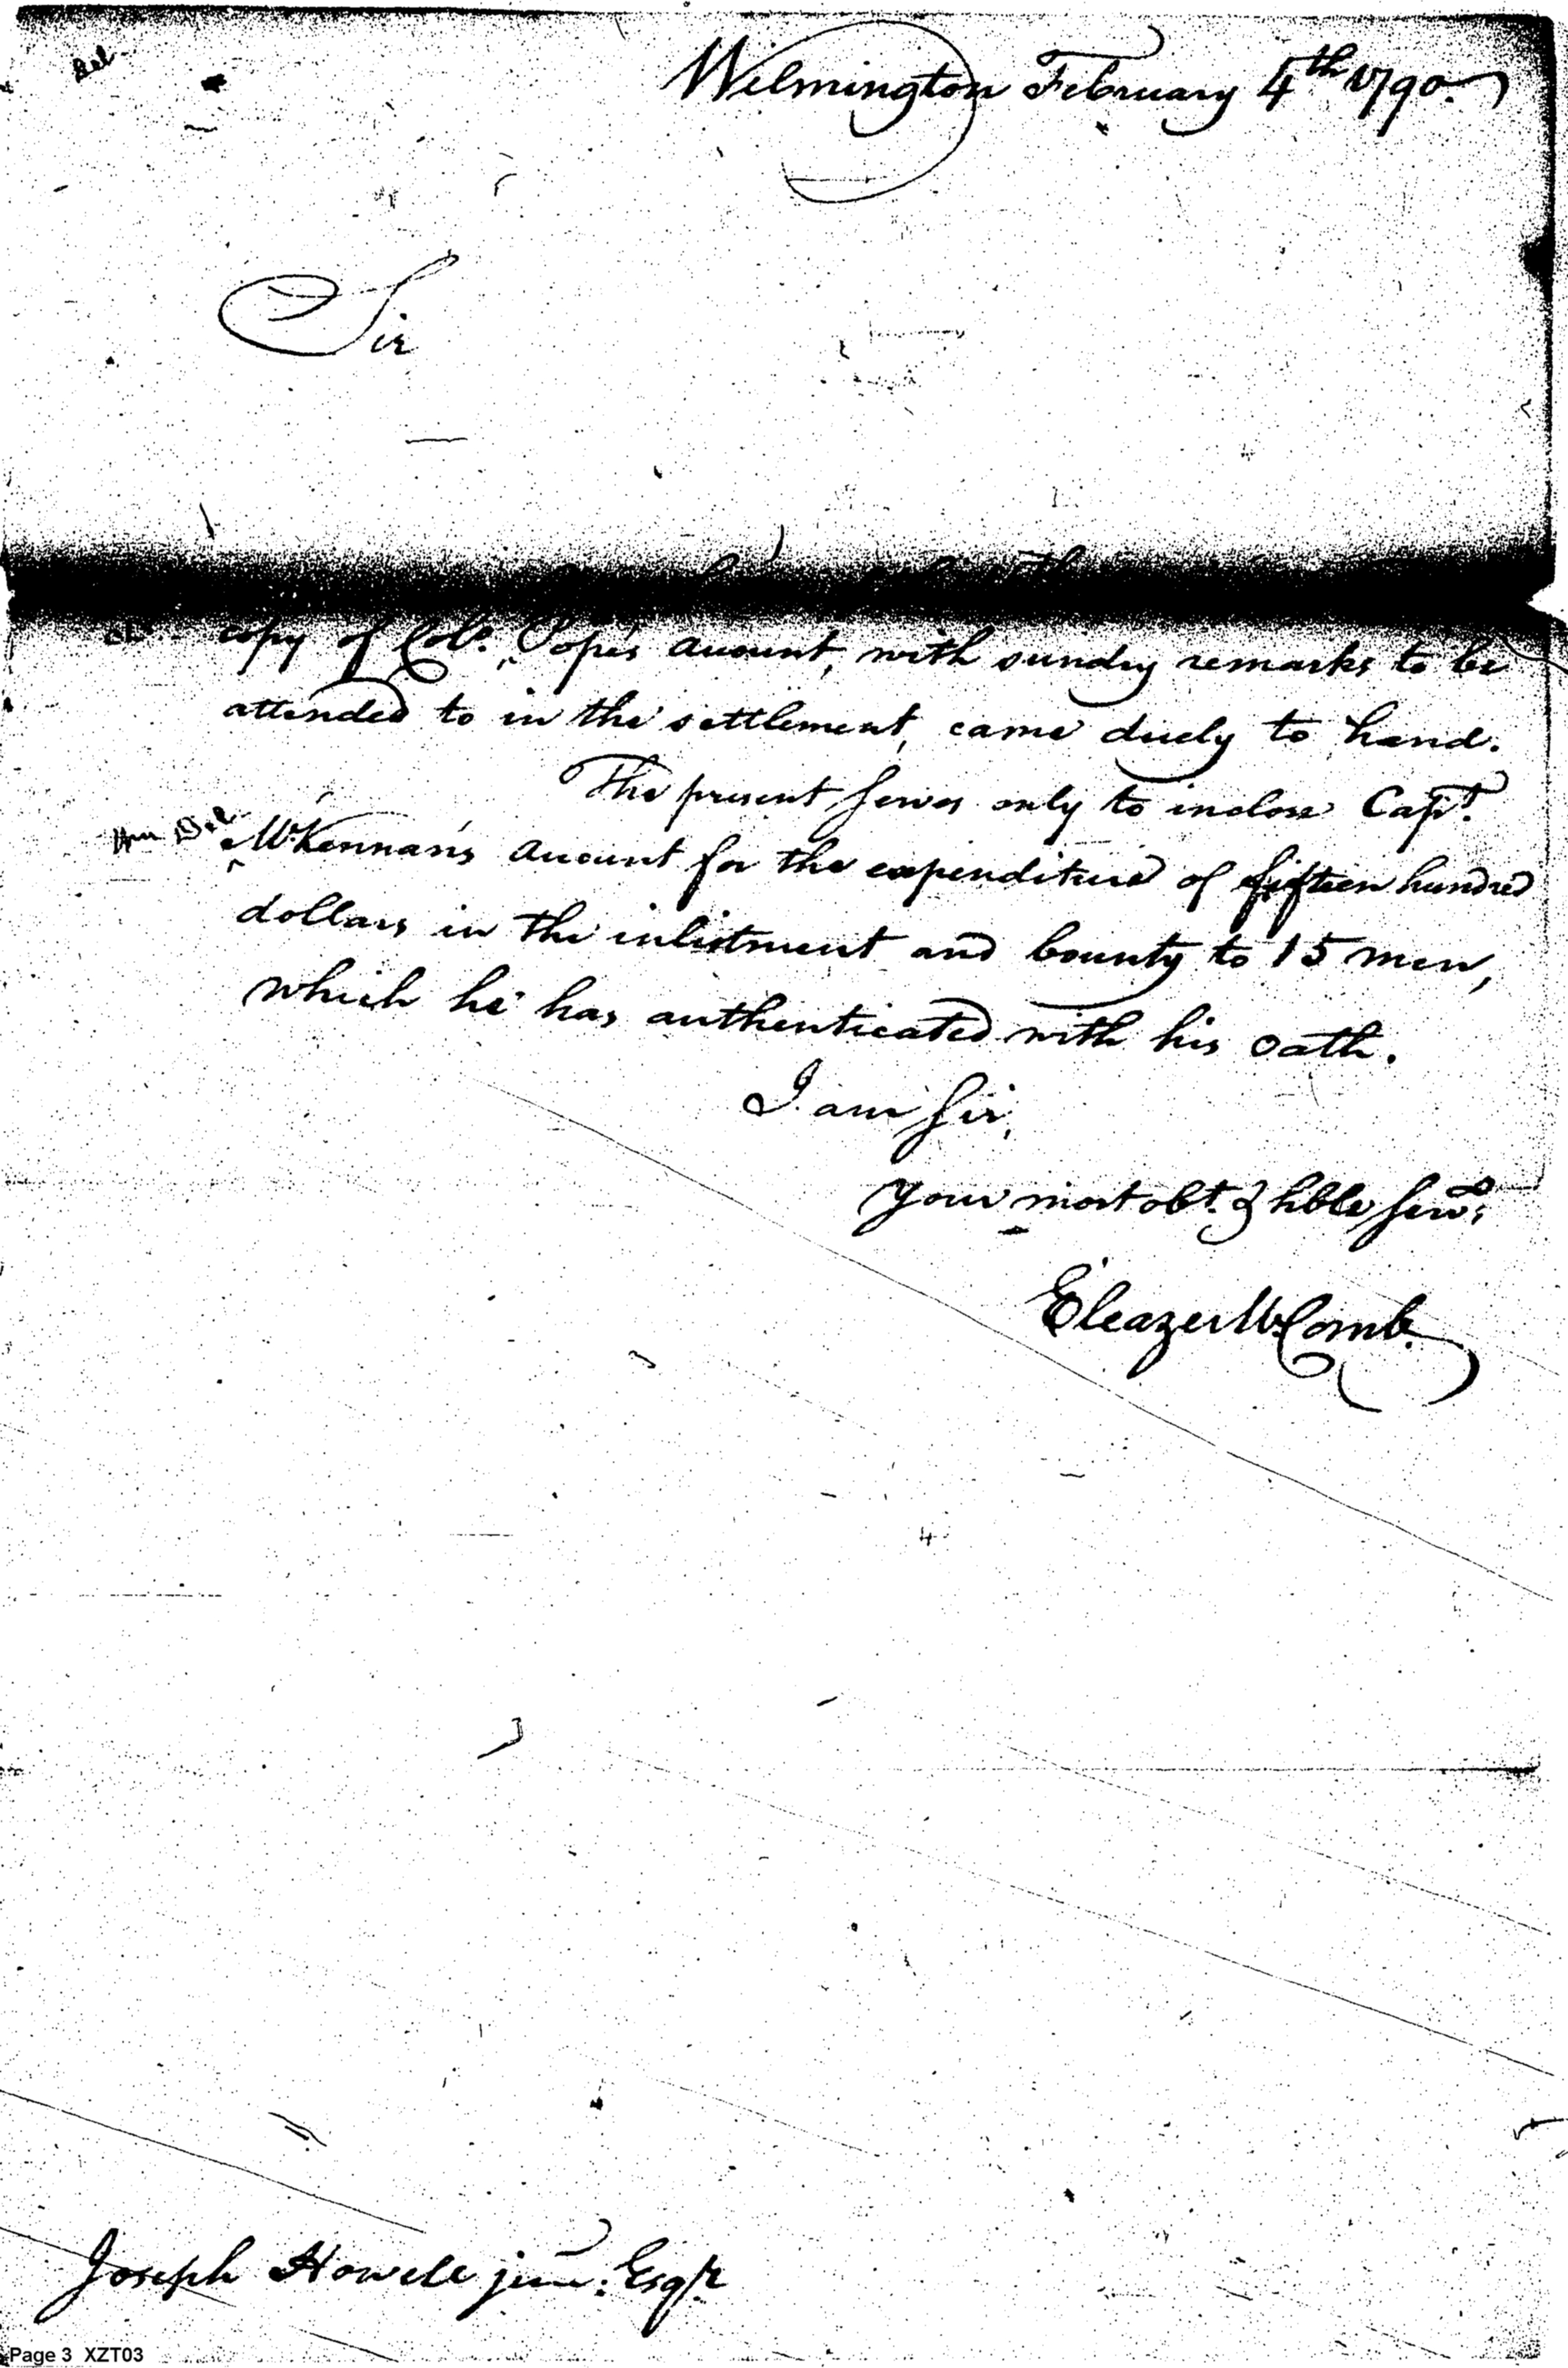 Del
Wilmington February 4th 1790.
Sir
copy of Colo. Pope's account, with sundry remarks to be
attended to in the settlement, came duely to hand.
The present serves only to inclose Capt.
Wm Del
McKennan's account for the expenditure of fifteen hundred
dollars in the inlistment and bounty to 15 men,
which he has authenticated with his oath.
I am Sir,
Your most obt. & hble Servt.
Eleazer McComb.
Joseph Howell junr. Esqr
Page 3 XZT03